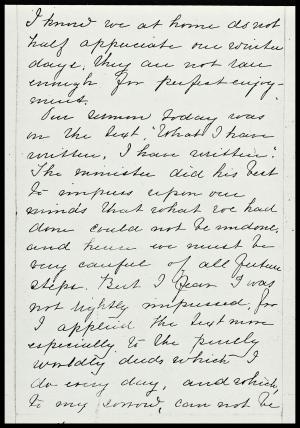 I know we at home do not
half appreciate our winter
days, they are not rare
enough for perfect enjoy-
ment.
Our sermon today was
on the text, "What I have
written, I have written."
The minister did his best
to impress upon our
minds that what we had
done could not be undone,
and hence we must be
very careful of all future
steps. But I fear I was
not rightly impressed, for
I applied the text more
especially to the purely
worldly deeds which I
do every day, and which,
to my sorrow, can not be